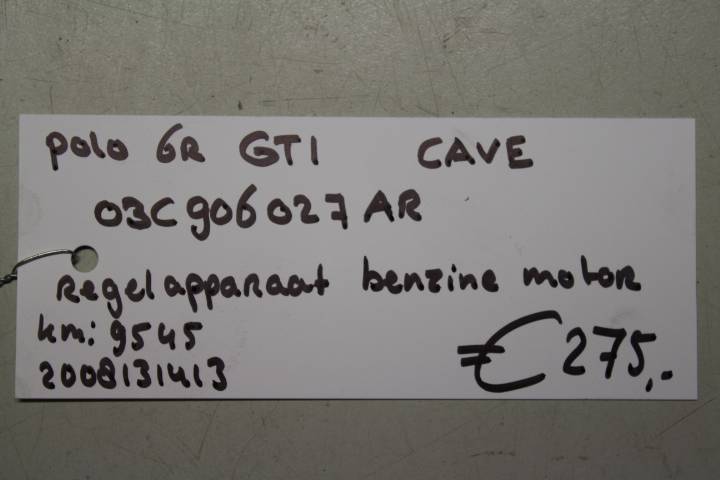 Polo 6R GTI CAVE
03C906027AR
Regelapparaat benzine motor
km: 9545
2008131413
€275,-